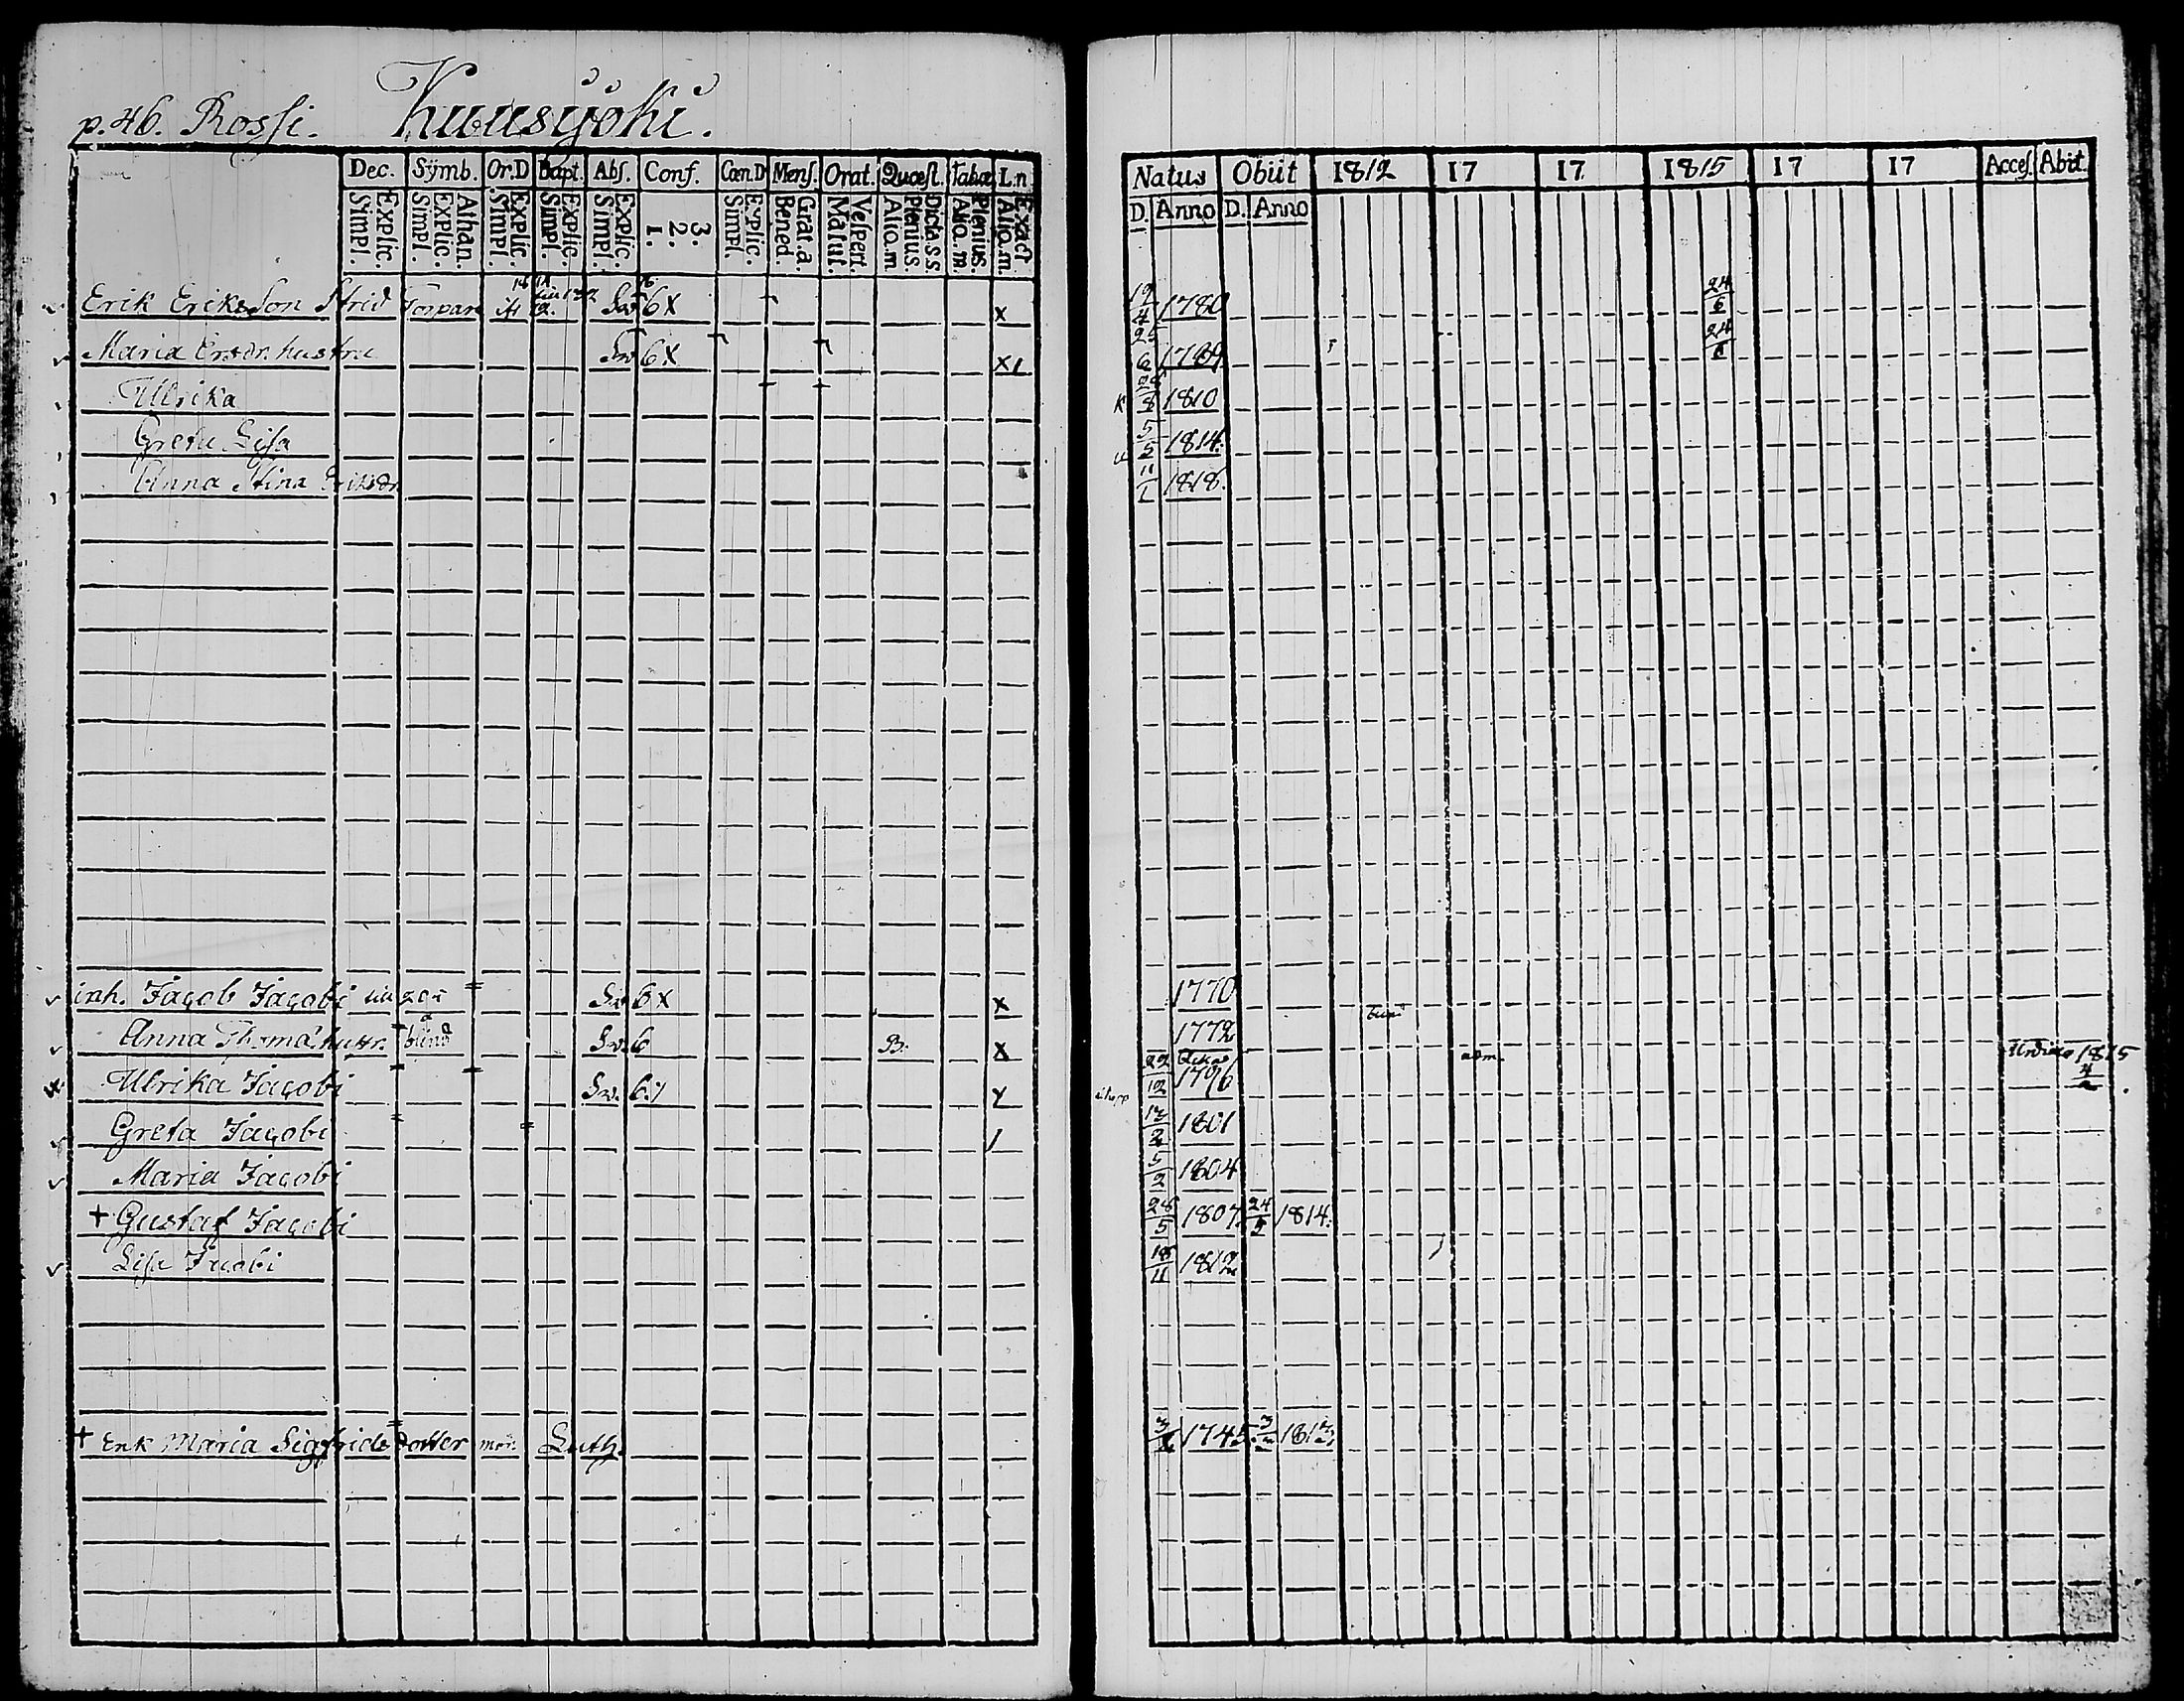 p. 46. Rossi. Kuusijoki.
Dec. Symb. Or.D Bapt. Abs. Conf. Cœn.D Mens. Orat. Quæst. Tabæ L.n
Explic. Simpl. Athan. Explic. Simpl. Explic. Simpl. Explic. Simpl. Explic. Simpl. 3. 2. 1. Explic. Simpl. Grat. a. Bened. Vespert. Matut. Dicta s.s. Plenius. Alio. m. Plenius. Alio. m. Exact Alio. m.
Natus Obiit 1812 17 17 1815 17 17 Acces. Abit
D. Anno D. Anno
Erik Eriksson Strid Torpare Sw 6 x x 12/4 1780 24/6
Maria Ersdr. hustru Sw 6 x x 25/6 1789. 24/6
Ulrika 28/8 1810
Greta Lisa 5/5 1814.
Anna Stina Eriksdr. 11/1 1818.
inh. Jacob Jacobi Sw 6 x x 1770
Anna Thomæ hustr. blind Sw. 6 B. x 1772
Ulrika Jacobi Sw. 6 29/12 1796 Urdiala 1815 4/2
Greta Jacobi 12/2 1801
Maria Jacobi 5/2 1804
+ Gustaf Jacobi 28/5 1807. 24/5 1814.
Lisa Jacobi 18/11 1812
+ Enk Maria Sigfrids dotter mor. Luth. 1745. 3/2 1813.